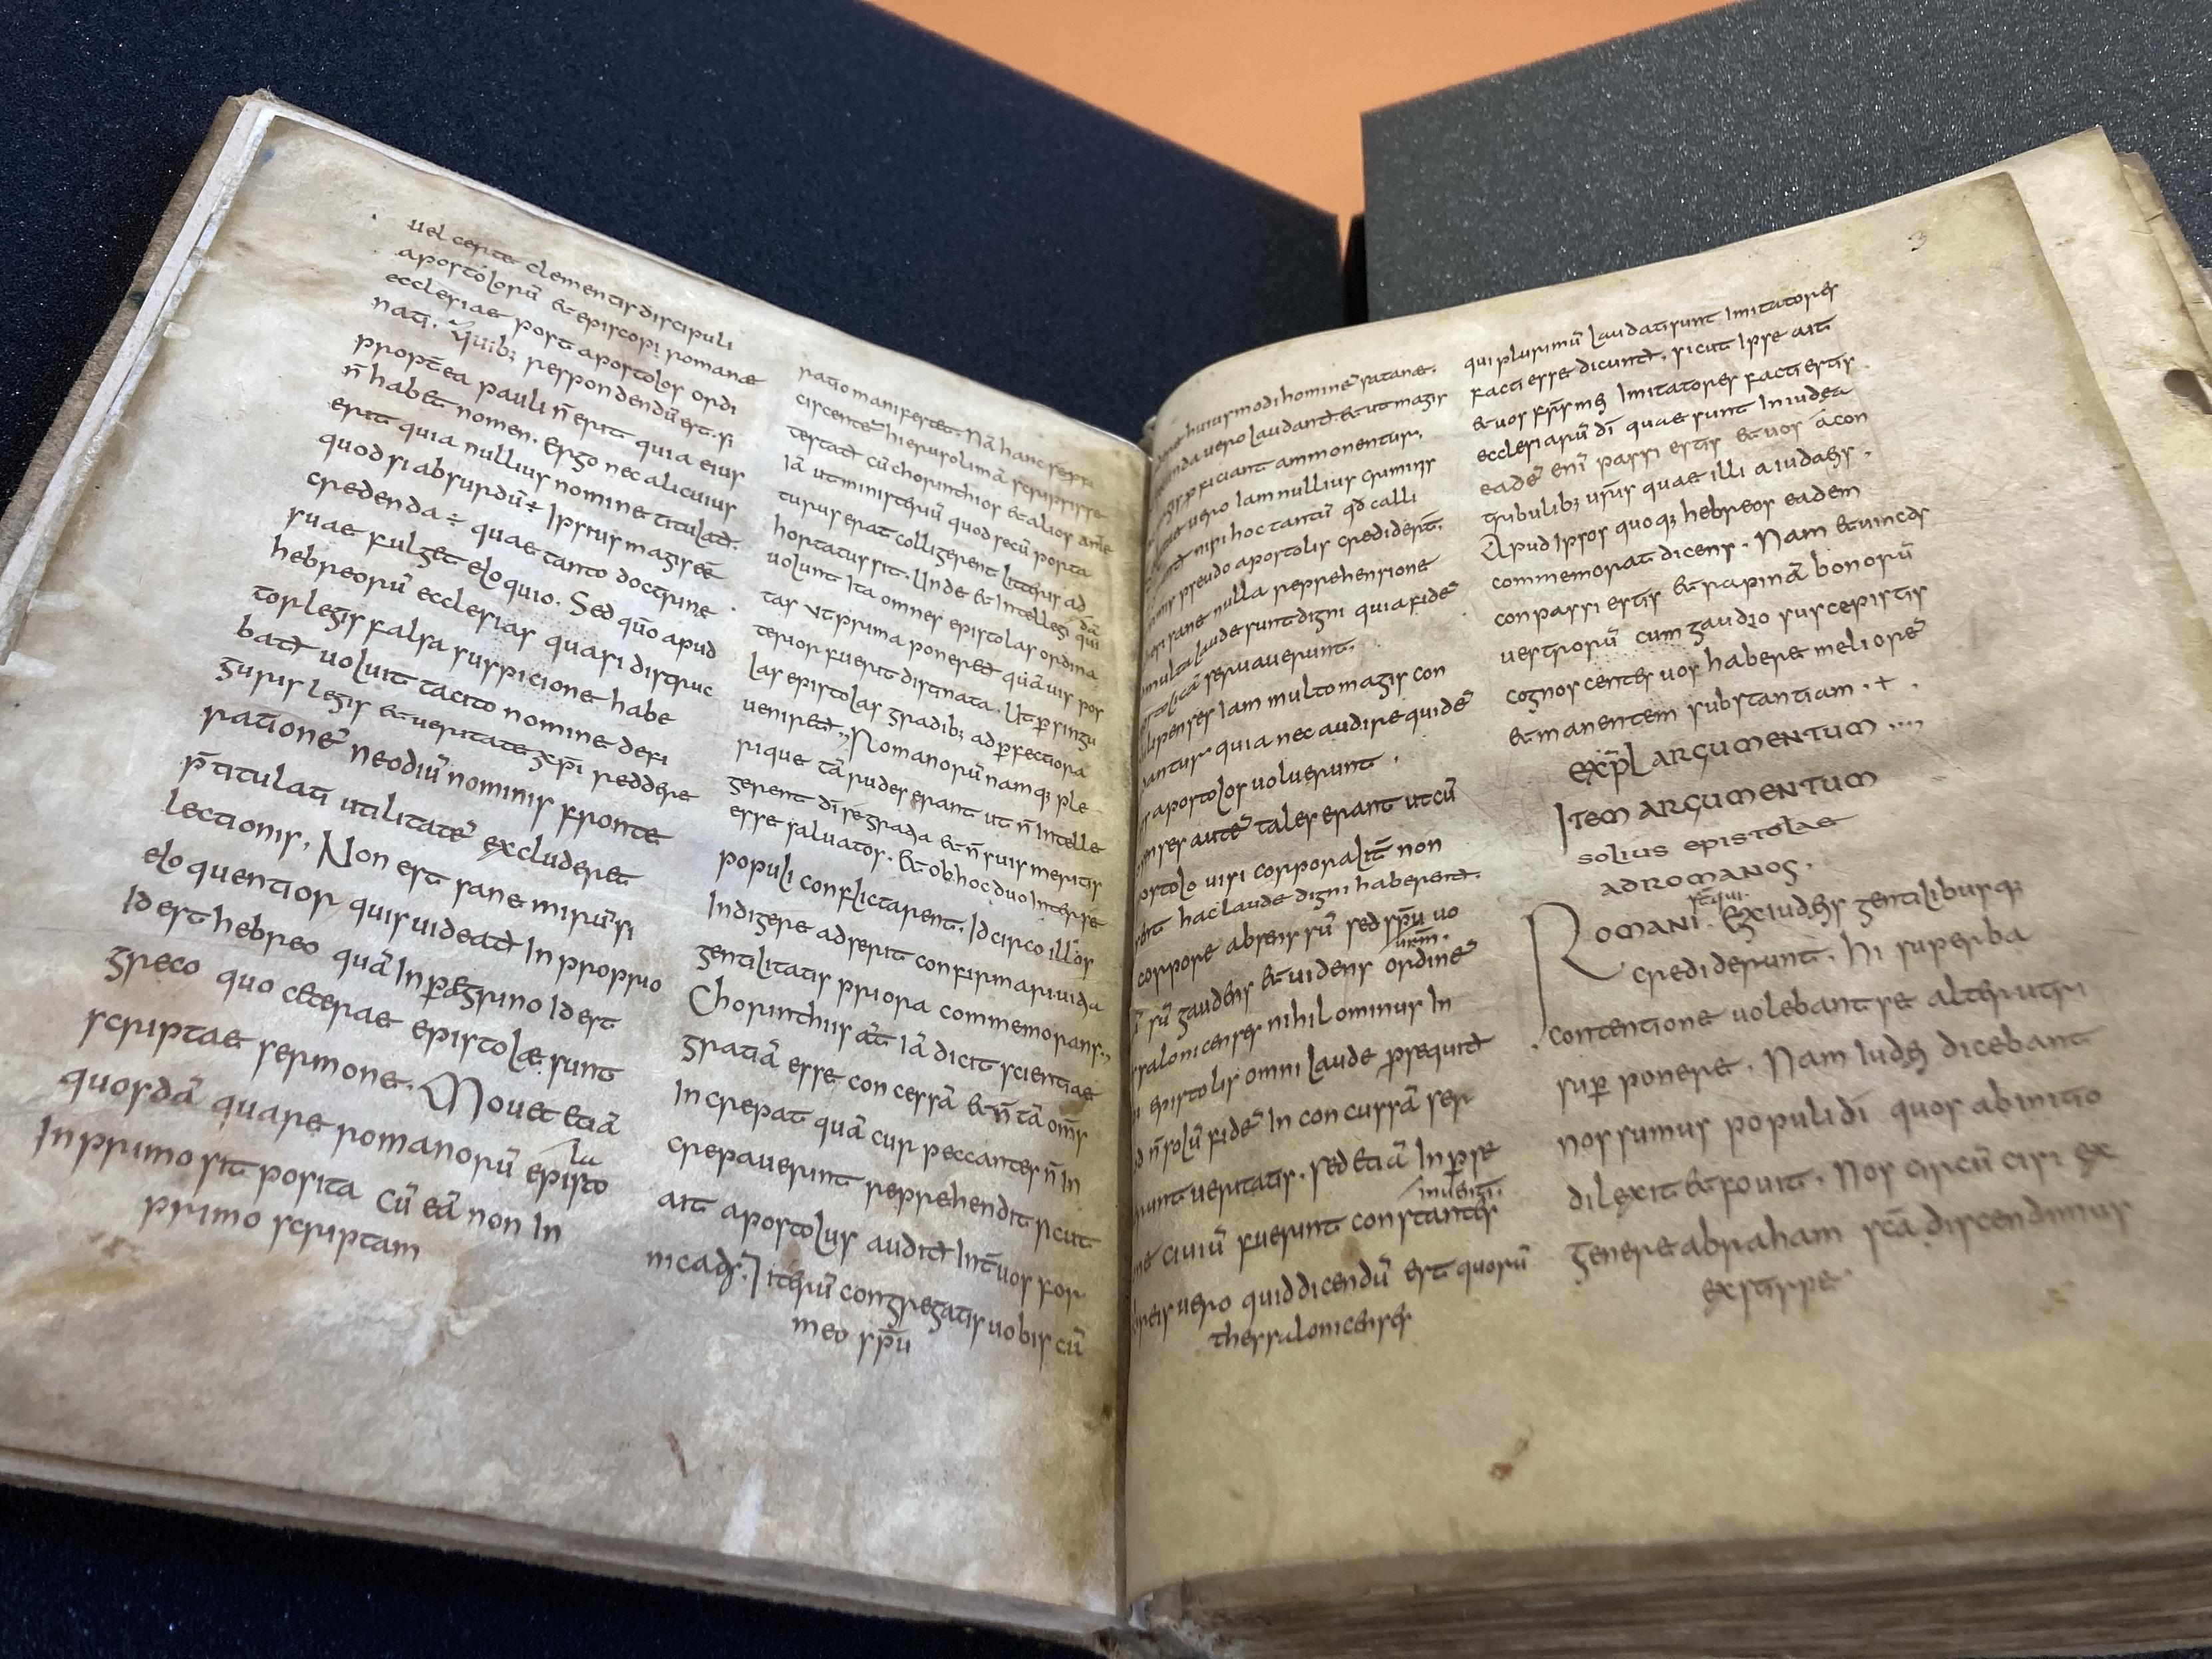 uel certe clementis discipuli
apostolorū & episcopi romanae
ecclesiae post apostolos ordi
nati. Quib; respondendū est. si
propt̄ea pauli n̄ erit quia eius
n̄ habet nomen. Ergo nec alicuius
erit quia nullius nomine titulat̄.
quod si absurdū ÷ ipsius magis eē
credenda ÷ quae tanto doctrine
suae fulget eloquio. Sed qūo apud
hebreorū ecclesias quasi distruc
tor legis falsa suspicione habe
bat̄ uoluit tacito nomine de fi
guris legis & ueritate xp̄i reddere
rationē ne odiū nominis fronte
p̄titulati utilitatē excluderet
lectionis. Non est sane mirū si
eloquentior quis uideat̄ in proprio
id est hebreo quā in peregrino id est
greco quo ceterae epistolae sunt
scriptae sermone. Mouet etiā
quosdā quare romanorū episto
la
in primo sit posita cū eā non in
primo scriptam
ratio manifestet. Nā hanc se
circentē hierusolimā scripsisse
testat̄ cū chorinthios & alios ante
iā ut ministeriū quod secū porta
turus erat colligerent litteris ad
hortatus sit. Unde & intellegi qui
dā
uolunt ita omnes epistolas ordina
tas ut prima poneret̄ quāuis pos
terior fuerit distinata. Ut p singu
las epistolas gradib; ad pfectiora
ueniret̄,, Romanorū namq; ple
rique tā rudes erant ut n̄ intelle
gerent dī se gratia & n̄ suis meritis
esse saluatos. & ob hoc duo inter se
populi conflictarent. Idcirco illos
indigere adserit confirmari uitia
gentilitatis priora commemorans,,
Chorinthiis aūt iā dicit scientiae
gratiā esse concessā & n̄ tā om̄s
increpat quā cur peccantes n̄ in
crepauerint reprehendit sicut
ait apostolus audit̄ int̄ uos for
nicatio. Iterū congregatis uobis cū
meo sp̄u
huiusmodi hominē satanae.
uero laudant̄. & ut magis
pficiant ammonentur.
uero iam nullius criminis
nisi hoc tantū qd̄ calli
pseudo apostolis credider̄t.
sane nulla reprehensione
multa laude sunt digni quia fidē
seruauerunt.
iam multo magis con
quia nec audire quidē
apostolos uoluerunt.
autē tales erant ut cū
uisi corporalit̄ non
hac laude digni haberent̄.
corpore absens sū sed sp̄u uo
ur̄m.
sū gaudens & uidens ordinē
nihilominus in
epistolis omni laude psequit̄
n̄ solū fidē inconcussā ser
ueritatis. sed etiā in pse
inuenti.
ciuiū fuerunt constantes
uero quid dicendū est quorū
thessalonicenses
3
qui plurimū laudati sunt imitatores
facti esse dicunt̄. sicut ipse ait
& uos fr̄s mei imitatores facti estis
ecclesiarū dī quae sunt in iudea
eadē eni passi estis & uos a con
tribulib; ur̄is quae illi a iudaeis.
Apud ipsos quoq; hebreos eadem
commemorat dicens. Nam & uinctis
conpassi estis & rapinā bonorū
uestrorū cum gaudio suscepistis
cognoscentes uos habere meliorē
& manentem substantiam.+.
EXPL ARGUMENTUM....
ITEM ARGUMENTUM
SOLIUS EPISTOLAE
AD ROMANOS.
ROMANI. Ex iudeis gentilibusq;
crediderunt. hi superba
contentione uolebant se alterutri
sup ponere. Nam iudei dicebant
nos sumus populi dī quos ab initio
dilexit & fouit. Nos circūcisi ex
genere abraham scā discendimus
ex stirpe